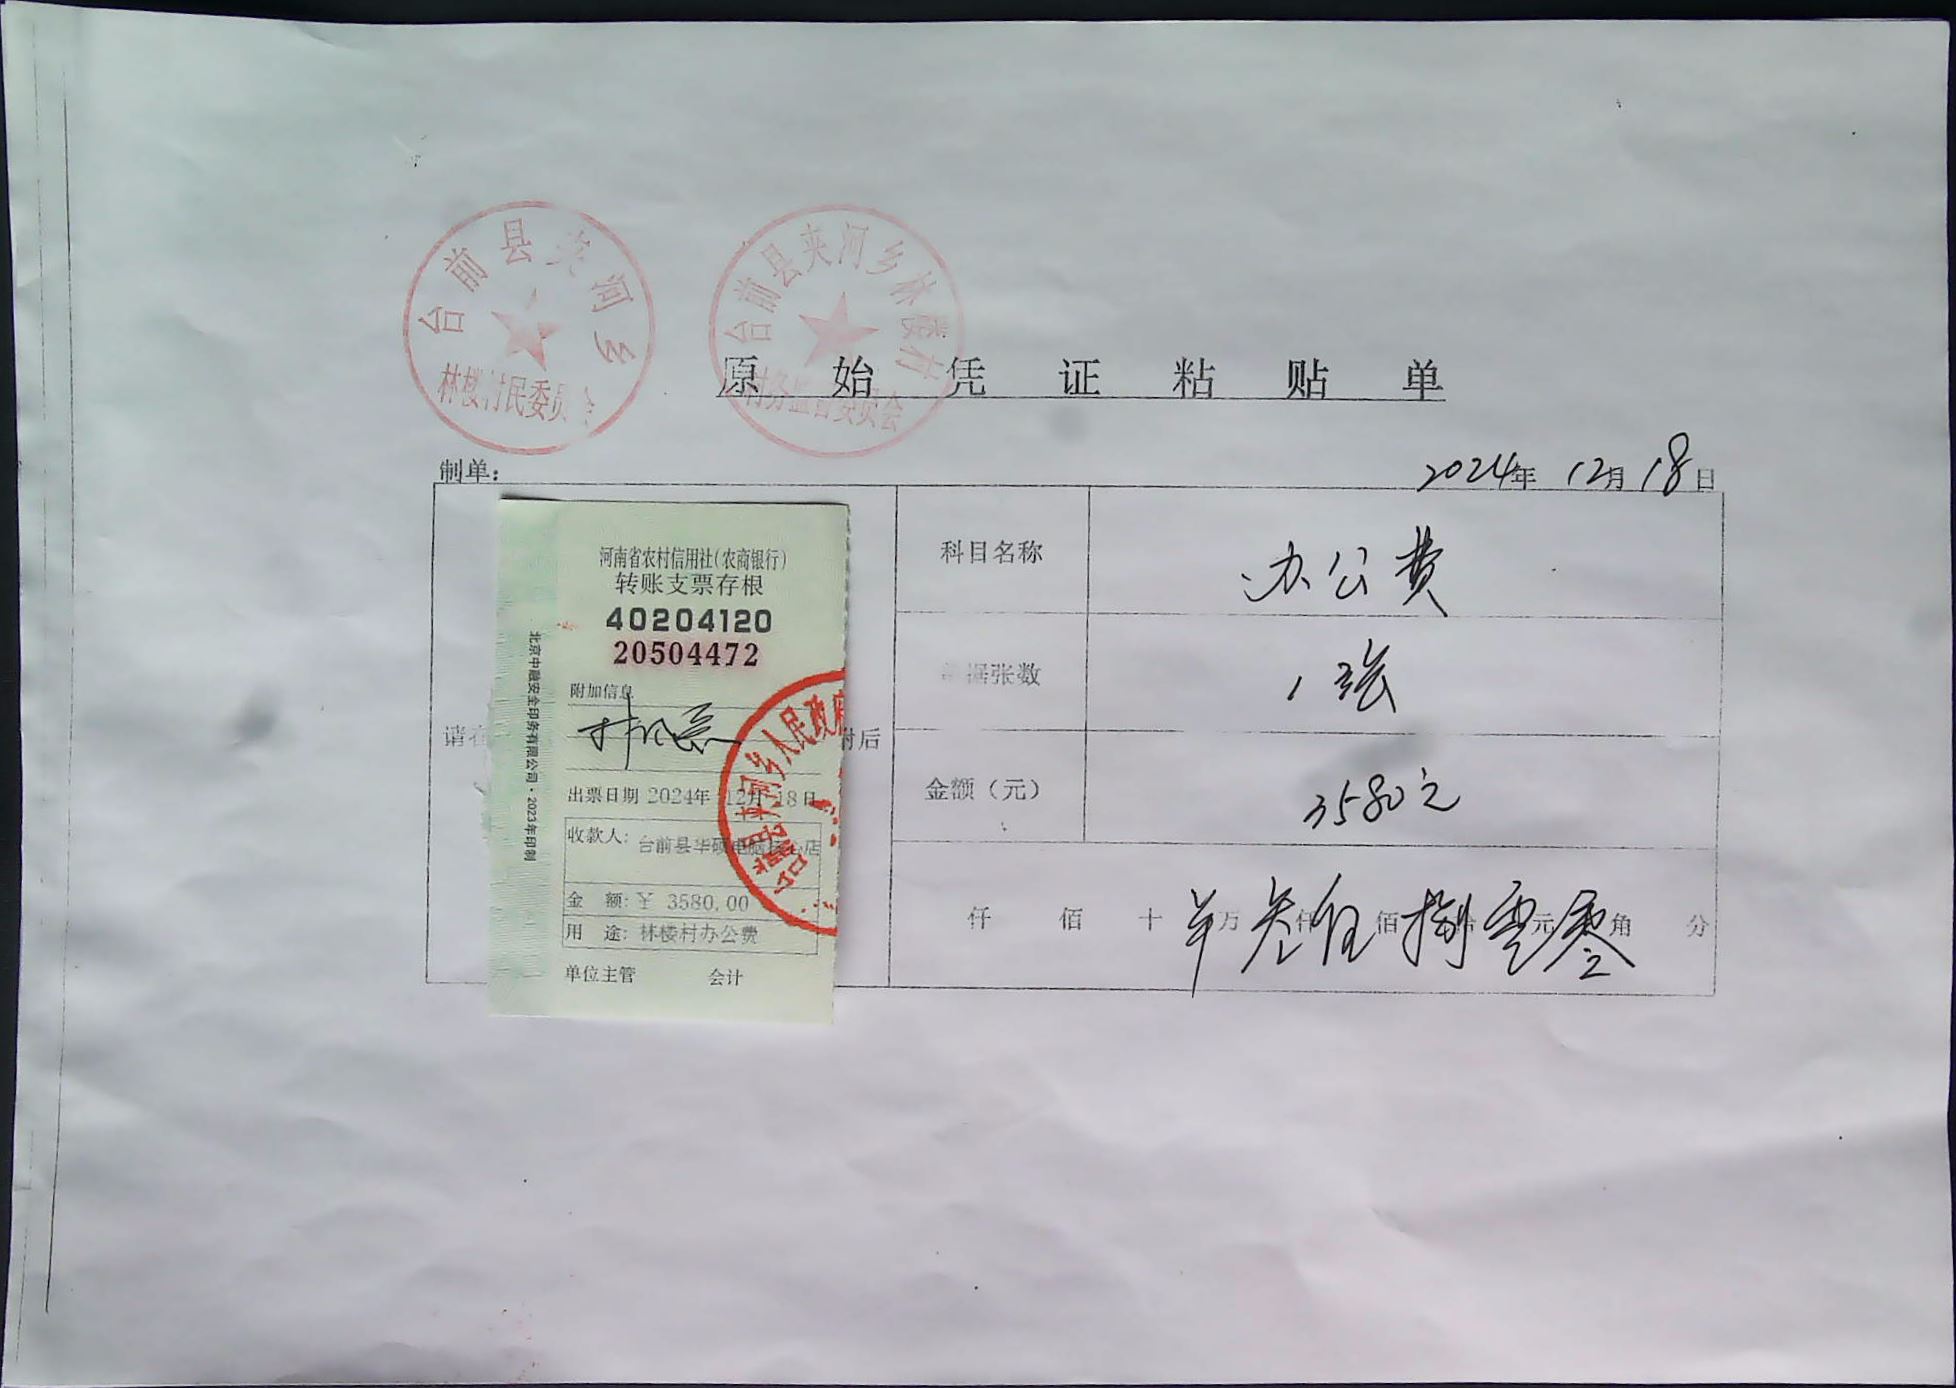 台前县夹河乡
林楼村民委员会
台前县夹河乡林楼村
村务监督委员会
原始凭证粘贴单
制单：
2024年 12月 18日
河南省农村信用社(农商银行)
转账支票存根
40204120
20504472
附加信息
出票日期 2024年 12月 18日
收款人: 台前县华硕电脑核心店
金 额: ¥ 3580.00
用 途: 林楼村办公费
单位主管 会计
北京中融安全印务有限公司·2023年印制
台前县夹河乡人民政府
请在
附后
科目名称 办公费
单据张数 1张
金额（元） 3580元
仟 佰 十 万 仟 佰 拾 元 角 分
叁 伍 捌 零 零